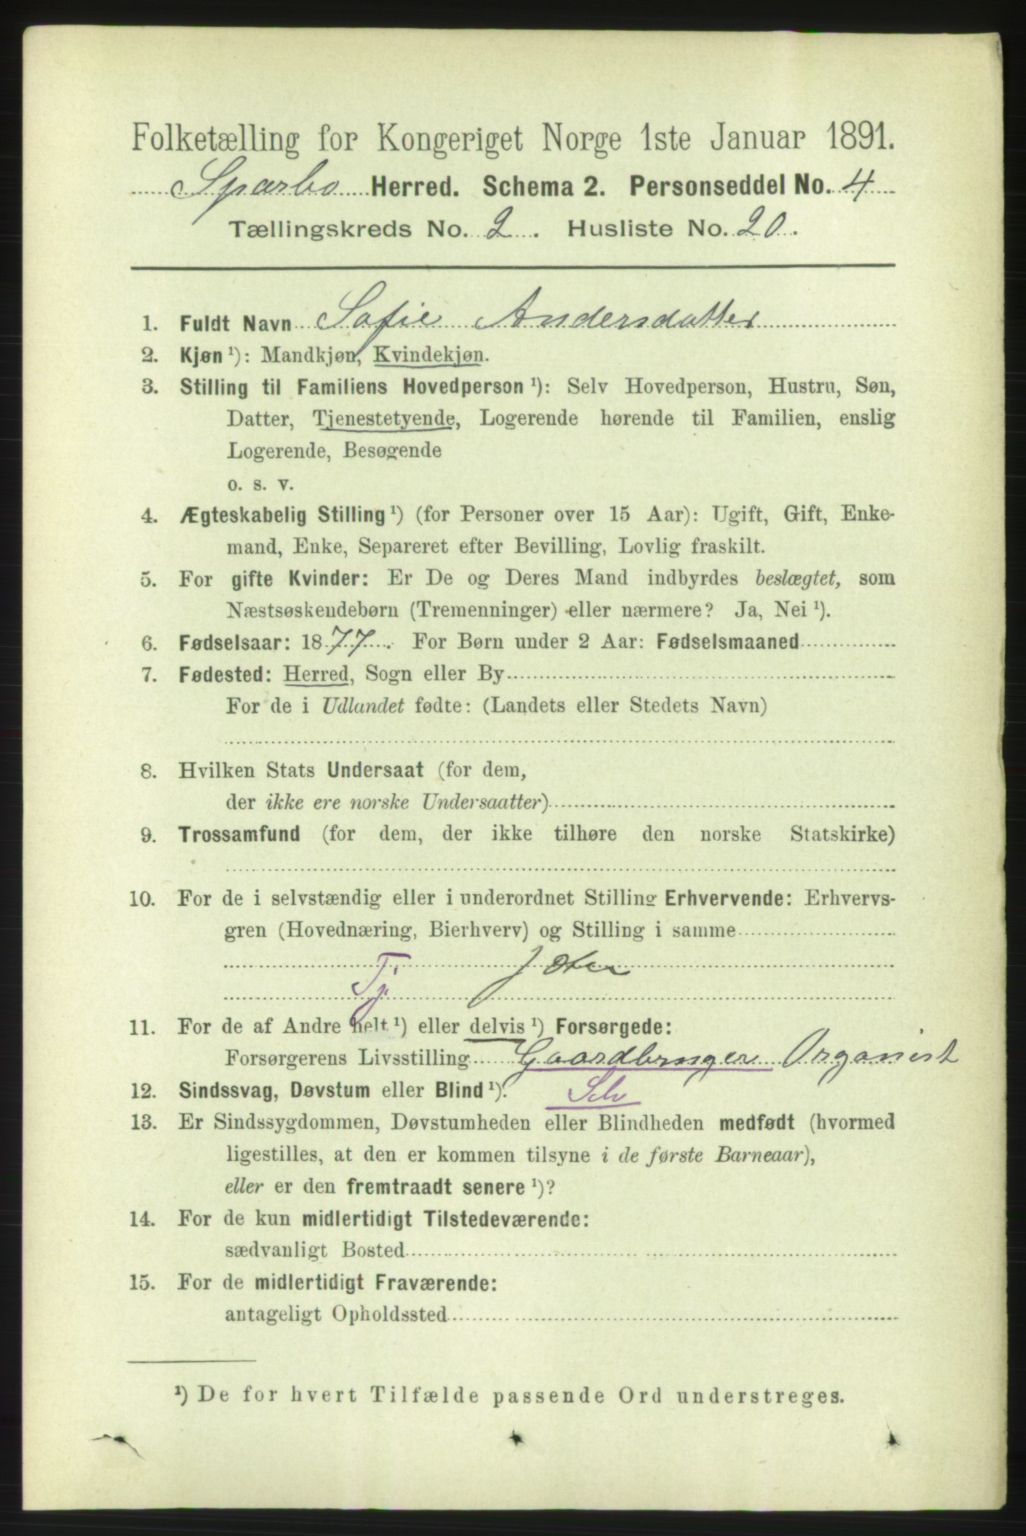 Folketælling for Kongeriget Norge 1ste Januar 1891.
Sparbo Herred. Schema 2. Personseddel No. 4
Tællingskreds No. 2. Husliste No. 20.
1. Fuldt Navn Sofie Andersdatter
2. Kjøn ¹): Mandkjøn, Kvindekjøn.
3. Stilling til Familiens Hovedperson ¹): Selv Hovedperson, Hustru, Søn,
Datter, Tjenestetyende, Logerende hørende til Familien, enslig
Logerende, Besøgende
o. s. v.
4. Ægteskabelig Stilling ¹) (for Personer over 15 Aar): Ugift, Gift, Enke-
mand, Enke, Separeret efter Bevilling, Lovlig fraskilt.
5. For gifte Kvinder: Er De og Deres Mand indbyrdes beslægtet, som
Næstsøskendebørn (Tremenninger) eller nærmere? Ja, Nei ¹).
6. Fødselsaar: 1877. For Børn under 2 Aar: Fødselsmaaned
7. Fødested: Herred, Sogn eller By
For de i Udlandet fødte: (Landets eller Stedets Navn)
8. Hvilken Stats Undersaat (for dem,
der ikke ere norske Undersaatter)
9. Trossamfund (for dem, der ikke tilhøre den norske Statskirke)
10. For de i selvstændig eller i underordnet Stilling Erhvervende: Erhvervs-
gren (Hovednæring, Bierhverv) og Stilling i samme
Tj.
11. For de af Andre helt ¹) eller delvis ¹) Forsørgede:
Forsørgerens Livsstilling Gaardbruger Organist
12. Sindssvag, Døvstum eller Blind ¹). Selv
13. Er Sindssygdommen, Døvstumheden eller Blindheden medfødt (hvormed
ligestilles, at den er kommen tilsyne i de første Barneaar),
eller er den fremtraadt senere ¹)?
14. For de kun midlertidigt Tilstedeværende:
sædvanligt Bosted
15. For de midlertidigt Fraværende:
antageligt Opholdssted
¹) De for hvert Tilfælde passende Ord understreges.